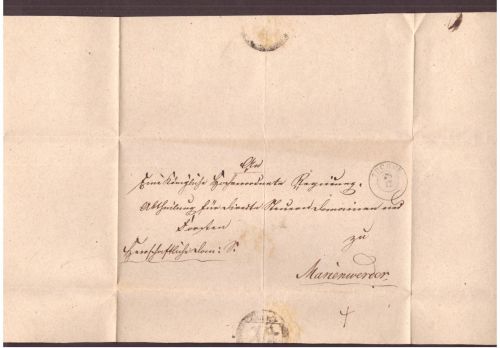 An
Eine Königliche Hochverordnete Regierung,
Abtheilung für directe Steuern Domainen und
Forsten
zu
Herrschaftliche Dom: S.
Marienwerder